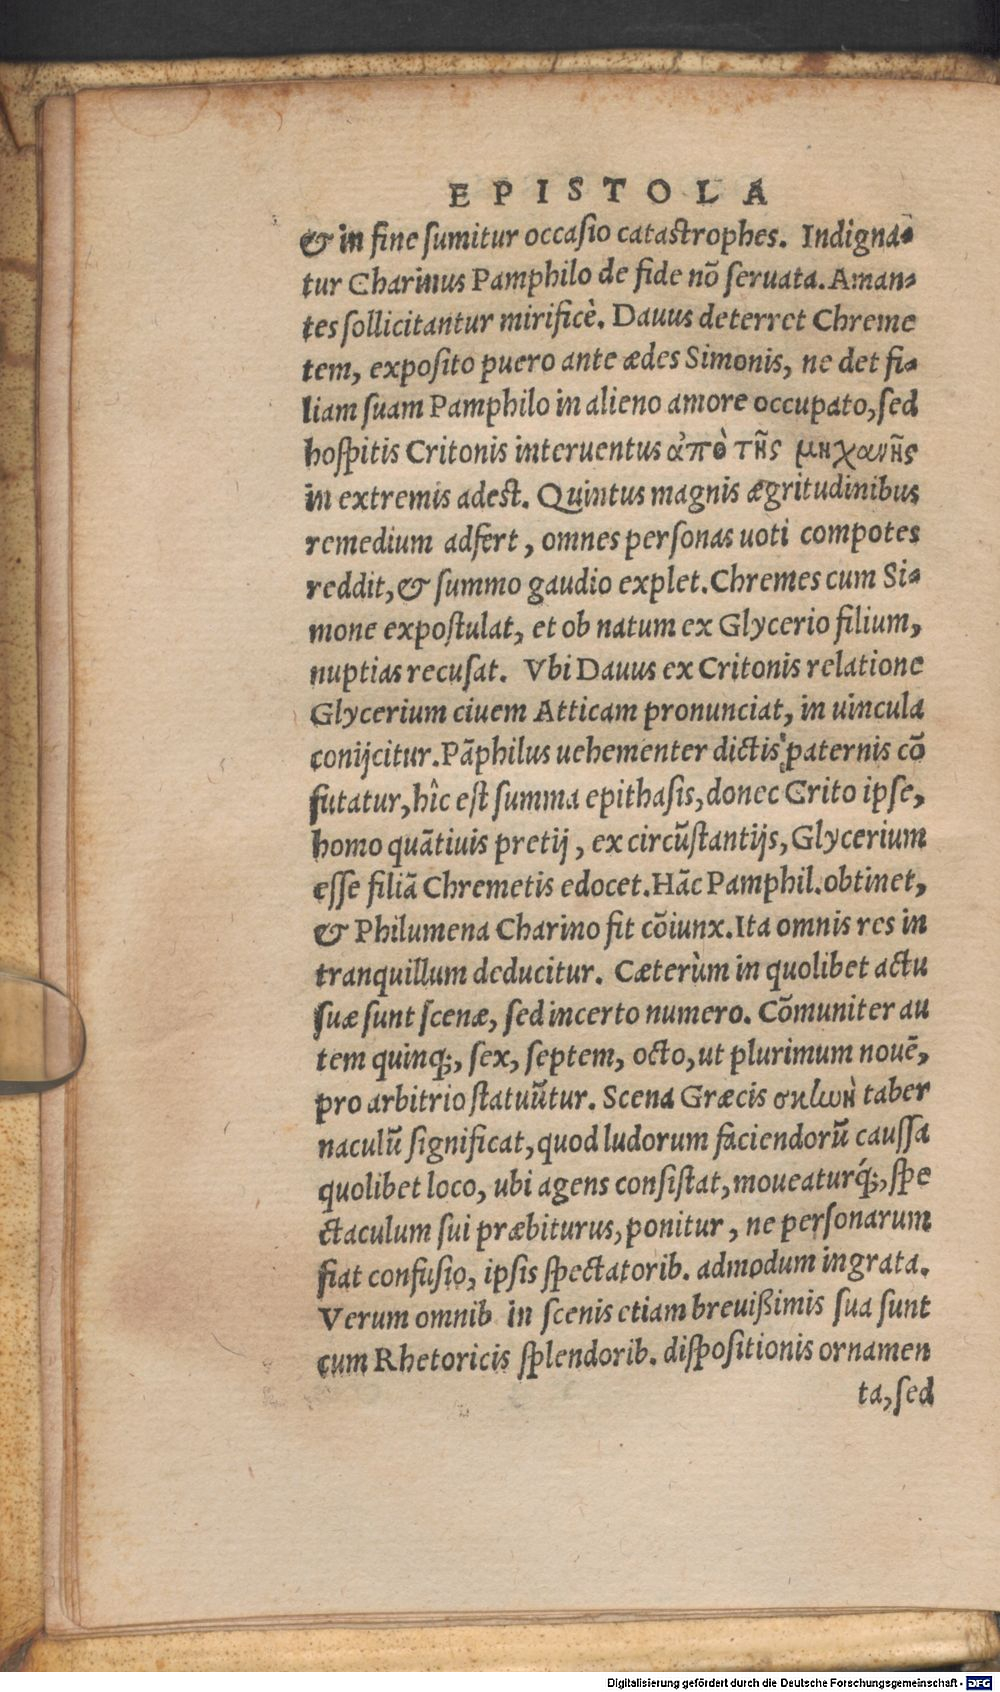 EPISTOLA
& in fine sumitur occasio catastrophes. Indigna-
tur Charinus Pamphilo de fide nō seruata. Aman-
tes sollicitantur mirificè. Dauus deterret Chreme
tem, exposito puero ante ædes Simonis, ne det fi-
liam suam Pamphilo in alieno amore occupato, sed
hospitis Critonis interuentus ἀπὸ τῆς μηχανῆς
in extremis adest. Quintus magnis ægritudinibus
remedium adfert, omnes personas uoti compotes
reddit, & summo gaudio explet. Chremes cum Si-
mone expostulat, et ob natum ex Glycerio filium,
nuptias recusat. Vbi Dauus ex Critonis relatione
Glycerium ciuem Atticam pronunciat, in uincula
conijcitur. Pāphilus uehementer dictis paternis cō
futatur, hîc est summa epithasis, donec Crito ipse,
homo quātiuis pretij, ex circūstantijs, Glycerium
esse filiā Chremetis edocet. Hāc Pamphil. obtinet,
& Philumena Charino fit cōiunx. Ita omnis res in
tranquillum deducitur. Cæterùm in quolibet actu
suæ sunt scenæ, sed incerto numero. Cōmuniter au
tem quinq;, sex, septem, octo, ut plurimum nouē,
pro arbitrio statuūtur. Scena Græcis σκωνὴ taber
naculū significat, quod ludorum faciendorū caussa
quolibet loco, ubi agens consistat, moueaturq́;, spe
ctaculum sui præbiturus, ponitur, ne personarum
fiat confusio, ipsis spectatorib. admodum ingrata.
Verum omnib in scenis etiam breuißimis sua sunt
cum Rhetoricis splendorib. dispositionis ornamen
ta, sed
Digitalisierung gefördert durch die Deutsche Forschungsgemeinschaft - DFG